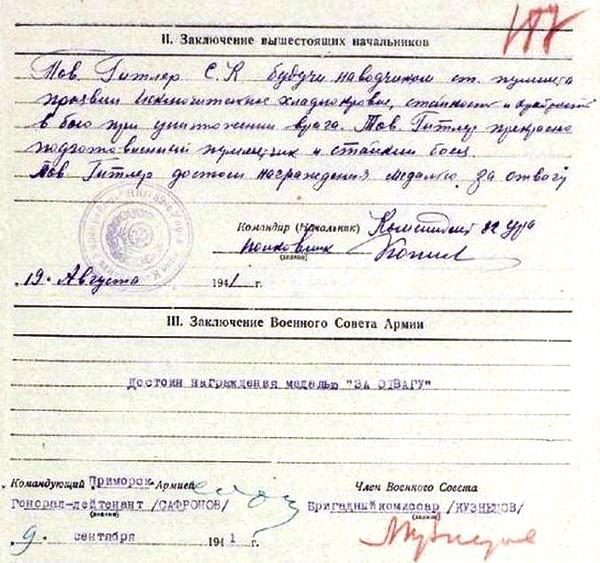 II. Заключение вышестоящих начальников
Тов. Гитлер С.К будучи наводчиком ст. пулмета
проявил исключительное хладнокровие, стойкость и храбрость
в бою при уничтожении врага. Тов. Гитлер прекрасно
подготовленный пулеметчик и стойкий боец.
Тов Гитлер достоен награждения медалью за отвагу
Командир (Начальник) Комендант 82 Ура
полковник
(звание)
19. Августа 1941 г.
III. Заключение Военного Совета Армии
Достоин награждения медалью "ЗА ОТВАГУ"
Командующий Приморск. Армией
Член Военного Совета
Генерал-лейтенант /САФРОНОВ/
Бригадный комиссар /КУЗНЕЦОВ/
(звание)
(звание)
9 сентября 1941 г.